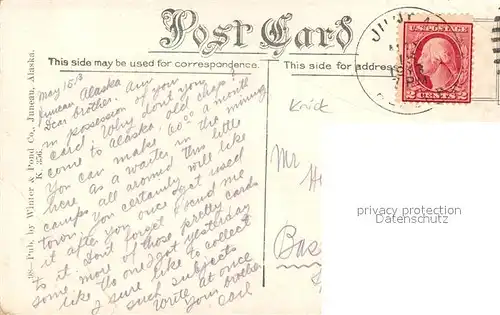 Post Card
This side may be used for correspondence.
This side for address
May 15-13
Juneau, Alaska
Dear brother. Am
in possession of your
card. Why don't you
come to Alaska, old chap?
You can make 60.00 a month
here as a waiter in the mining
camps all around this little
town. You certainly will like
it after you once get used
to it. Don't forget & send me
some more of those pretty cards
like the one I got yesterday
I sure like to collect
such subjects
Write at once
Your brother
Carl
398 - Pub. by Winter & Pond Co., Juneau, Alaska.
K. 356.
2 CENTS 2
Mr
privacy protection
Datenschutz